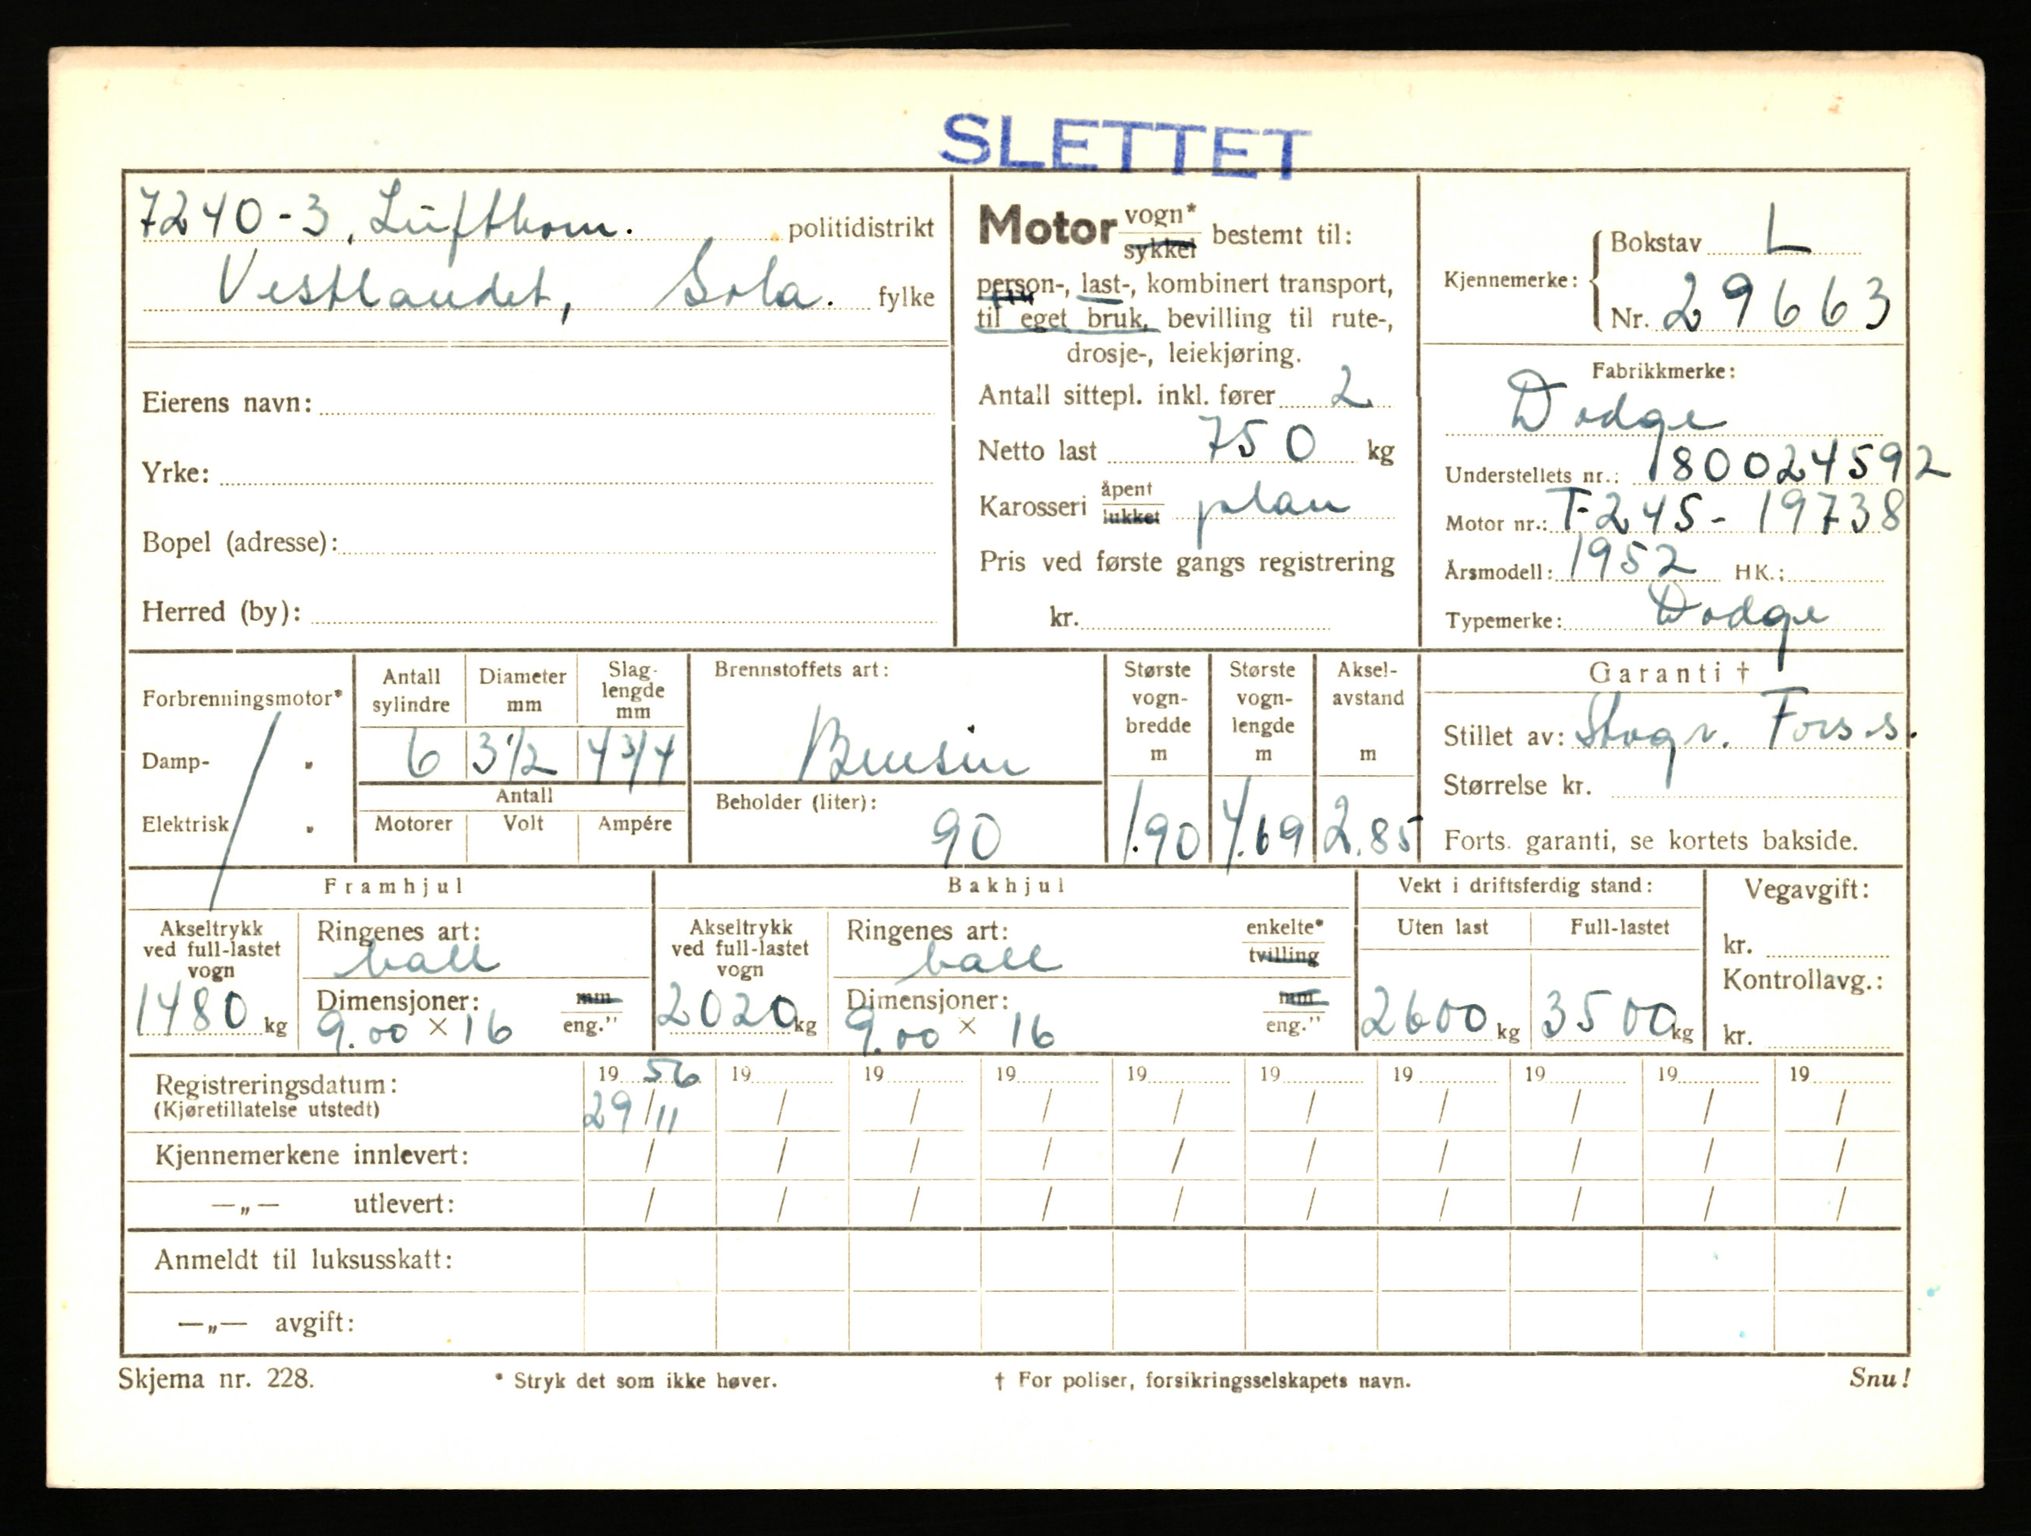 SLETTET
7240-3, Luftkom. politidistrikt
Vestlandet, Sola. fylke
Eierens navn:
Yrke:
Bopel (adresse):
Herred (by):
Motor vogn* sykkel bestemt til:
person-, last-, kombinert transport,
til eget bruk, bevilling til rute-,
drosje-, leiekjøring.
Antall sittepl. inkl. fører 2
Netto last 750 kg
Karosseri åpent lukket plan
Pris ved første gangs registrering
kr.
Kjennemerke: Bokstav L
Nr. 29663
Fabrikkmerke:
Dodge
Understellets nr.: 180024592
Motor nr.: T-245-19738
Årsmodell: 1952 HK.:
Typemerke: Dodge
Forbrenningsmotor*
Damp- "
Elektrisk "
Antall sylindre Diameter mm Slag-lengde mm
6 3 1/2 4 3/4
Antall
Motorer Volt Ampére
Brennstoffets art:
Bensin
Beholder (liter):
90
Største vogn-bredde m Største vogn-lengde m Aksel-avstand m
1.90 4.69 2.85
Garanti †
Stillet av: Stogr. Fors.s.
Størrelse kr.
Forts. garanti, se kortets bakside.
Framhjul
Akseltrykk ved full-lastet vogn
1480 kg
Ringenes art:
ball
Dimensjoner: mm
9.00 × 16 eng."
Bakhjul
Akseltrykk ved full-lastet vogn
2020 kg
Ringenes art: enkelte*
ball tvilling
Dimensjoner: mm
9.00 × 16 eng."
Vekt i driftsferdig stand:
Uten last Full-lastet
2600 kg 3500 kg
Vegavgift:
kr.
Kontrollavg.:
kr.
Registreringsdatum: 19 56 19 19 19 19 19 19 19 19 19
(Kjøretillatelse utstedt) 29/11 / / / / / / / / /
Kjennemerkene innlevert: / / / / / / / / / /
—„— utlevert: / / / / / / / / / /
Anmeldt til luksusskatt:
—„— avgift:
Skjema nr. 228. * Stryk det som ikke høver. † For poliser, forsikringsselskapets navn. Snu!